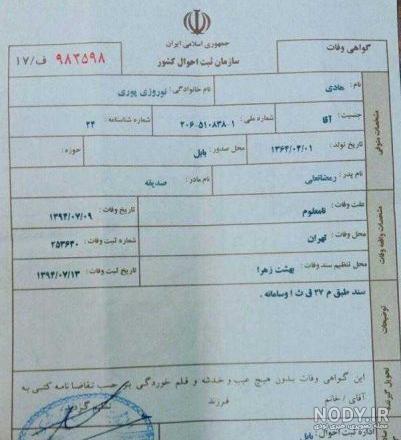 جمهوری اسلامی ایران
سازمان ثبت احوال کشور
گواهی وفات
ف/۱۷ ۹۸۳۵۹۸
مشخصات متوفی
نام : هادی
نام خانوادگی : نوروزی پوری
جنسیت : آقا
شماره ملی : ۲۰۶-۵۱۰۸۳۸-۱
شماره شناسنامه : ۲۴
تاریخ تولد : ۱۳۶۴/۰۴/۰۱
محل صدور : بابل
حوزه :
نام پدر : رمضانعلی
نام مادر : صدیقه
مشخصات واقعه وفات
علت وفات : نامعلوم
تاریخ وفات : ۱۳۹۴/۰۷/۰۹
محل وفات : تهران
شماره ثبت وفات : ۲۵۳۶۴۰
محل تنظیم سند وفات : بهشت زهرا
تاریخ ثبت وفات : ۱۳۹۴/۰۷/۱۳
توضیحات
سند طبق م ۲۷ ق ث ا وسامانه .
تحویل گیرنده
این گواهی وفات بدون هیچ عیب و خدشه و قلم خوردگی بر حسب تقاضا نامه کتبی به
آقای / خانم فرزند
تسلیم گردید
اداره ثبت احوال : بابل
NODY.IR